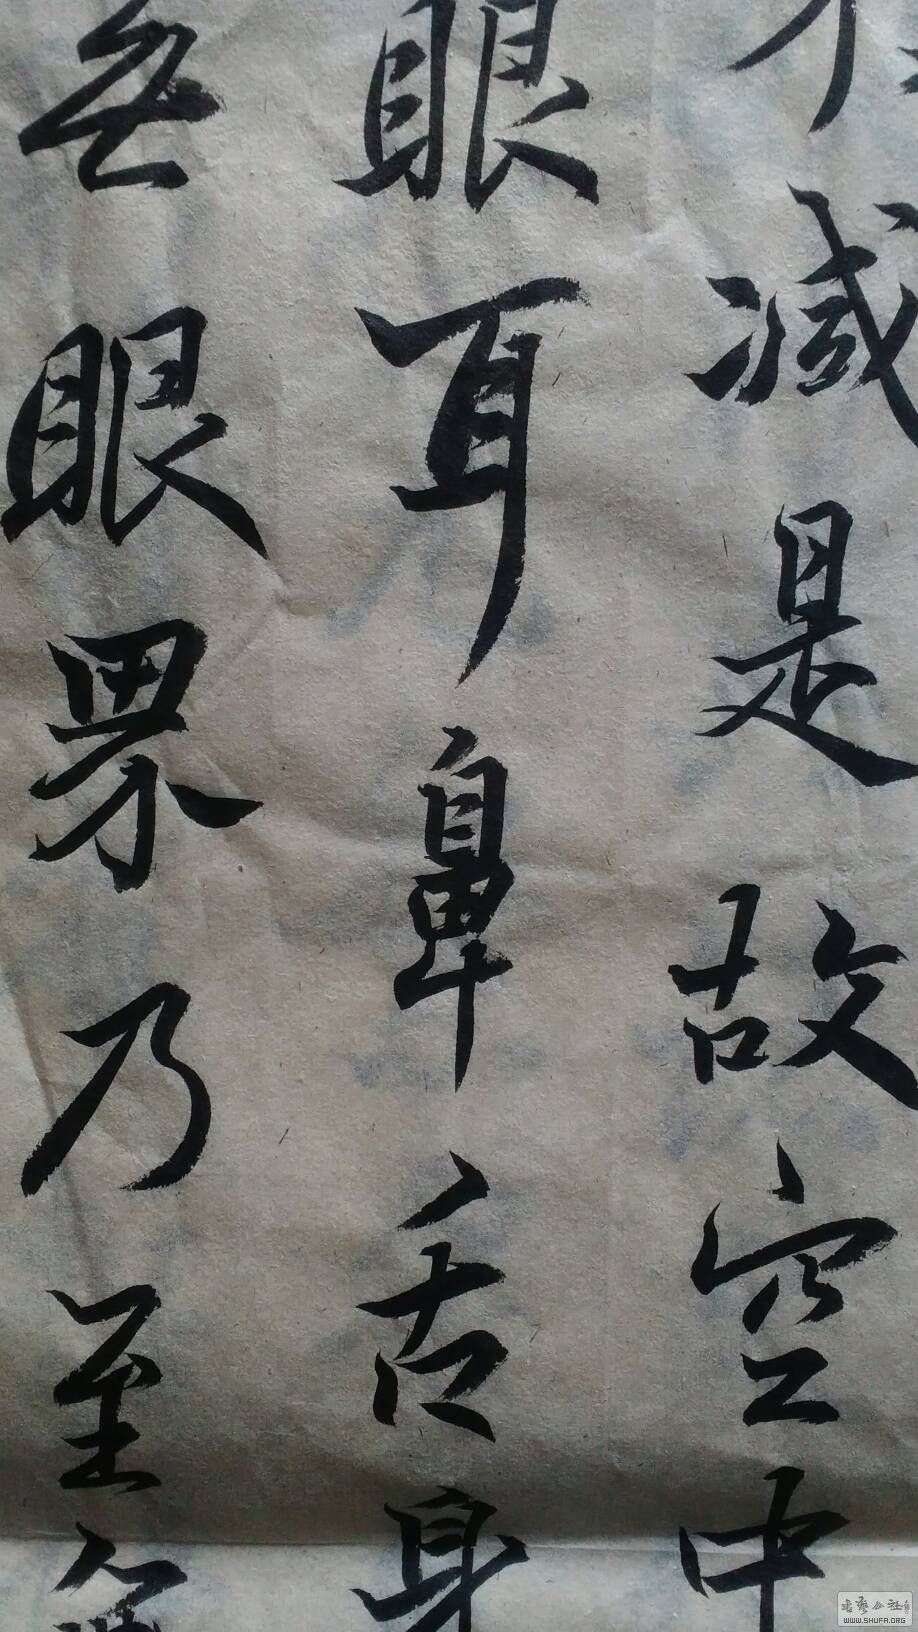 減是故空中
眼耳鼻舌身
無眼界乃至無
WWW.SHUFA.ORG